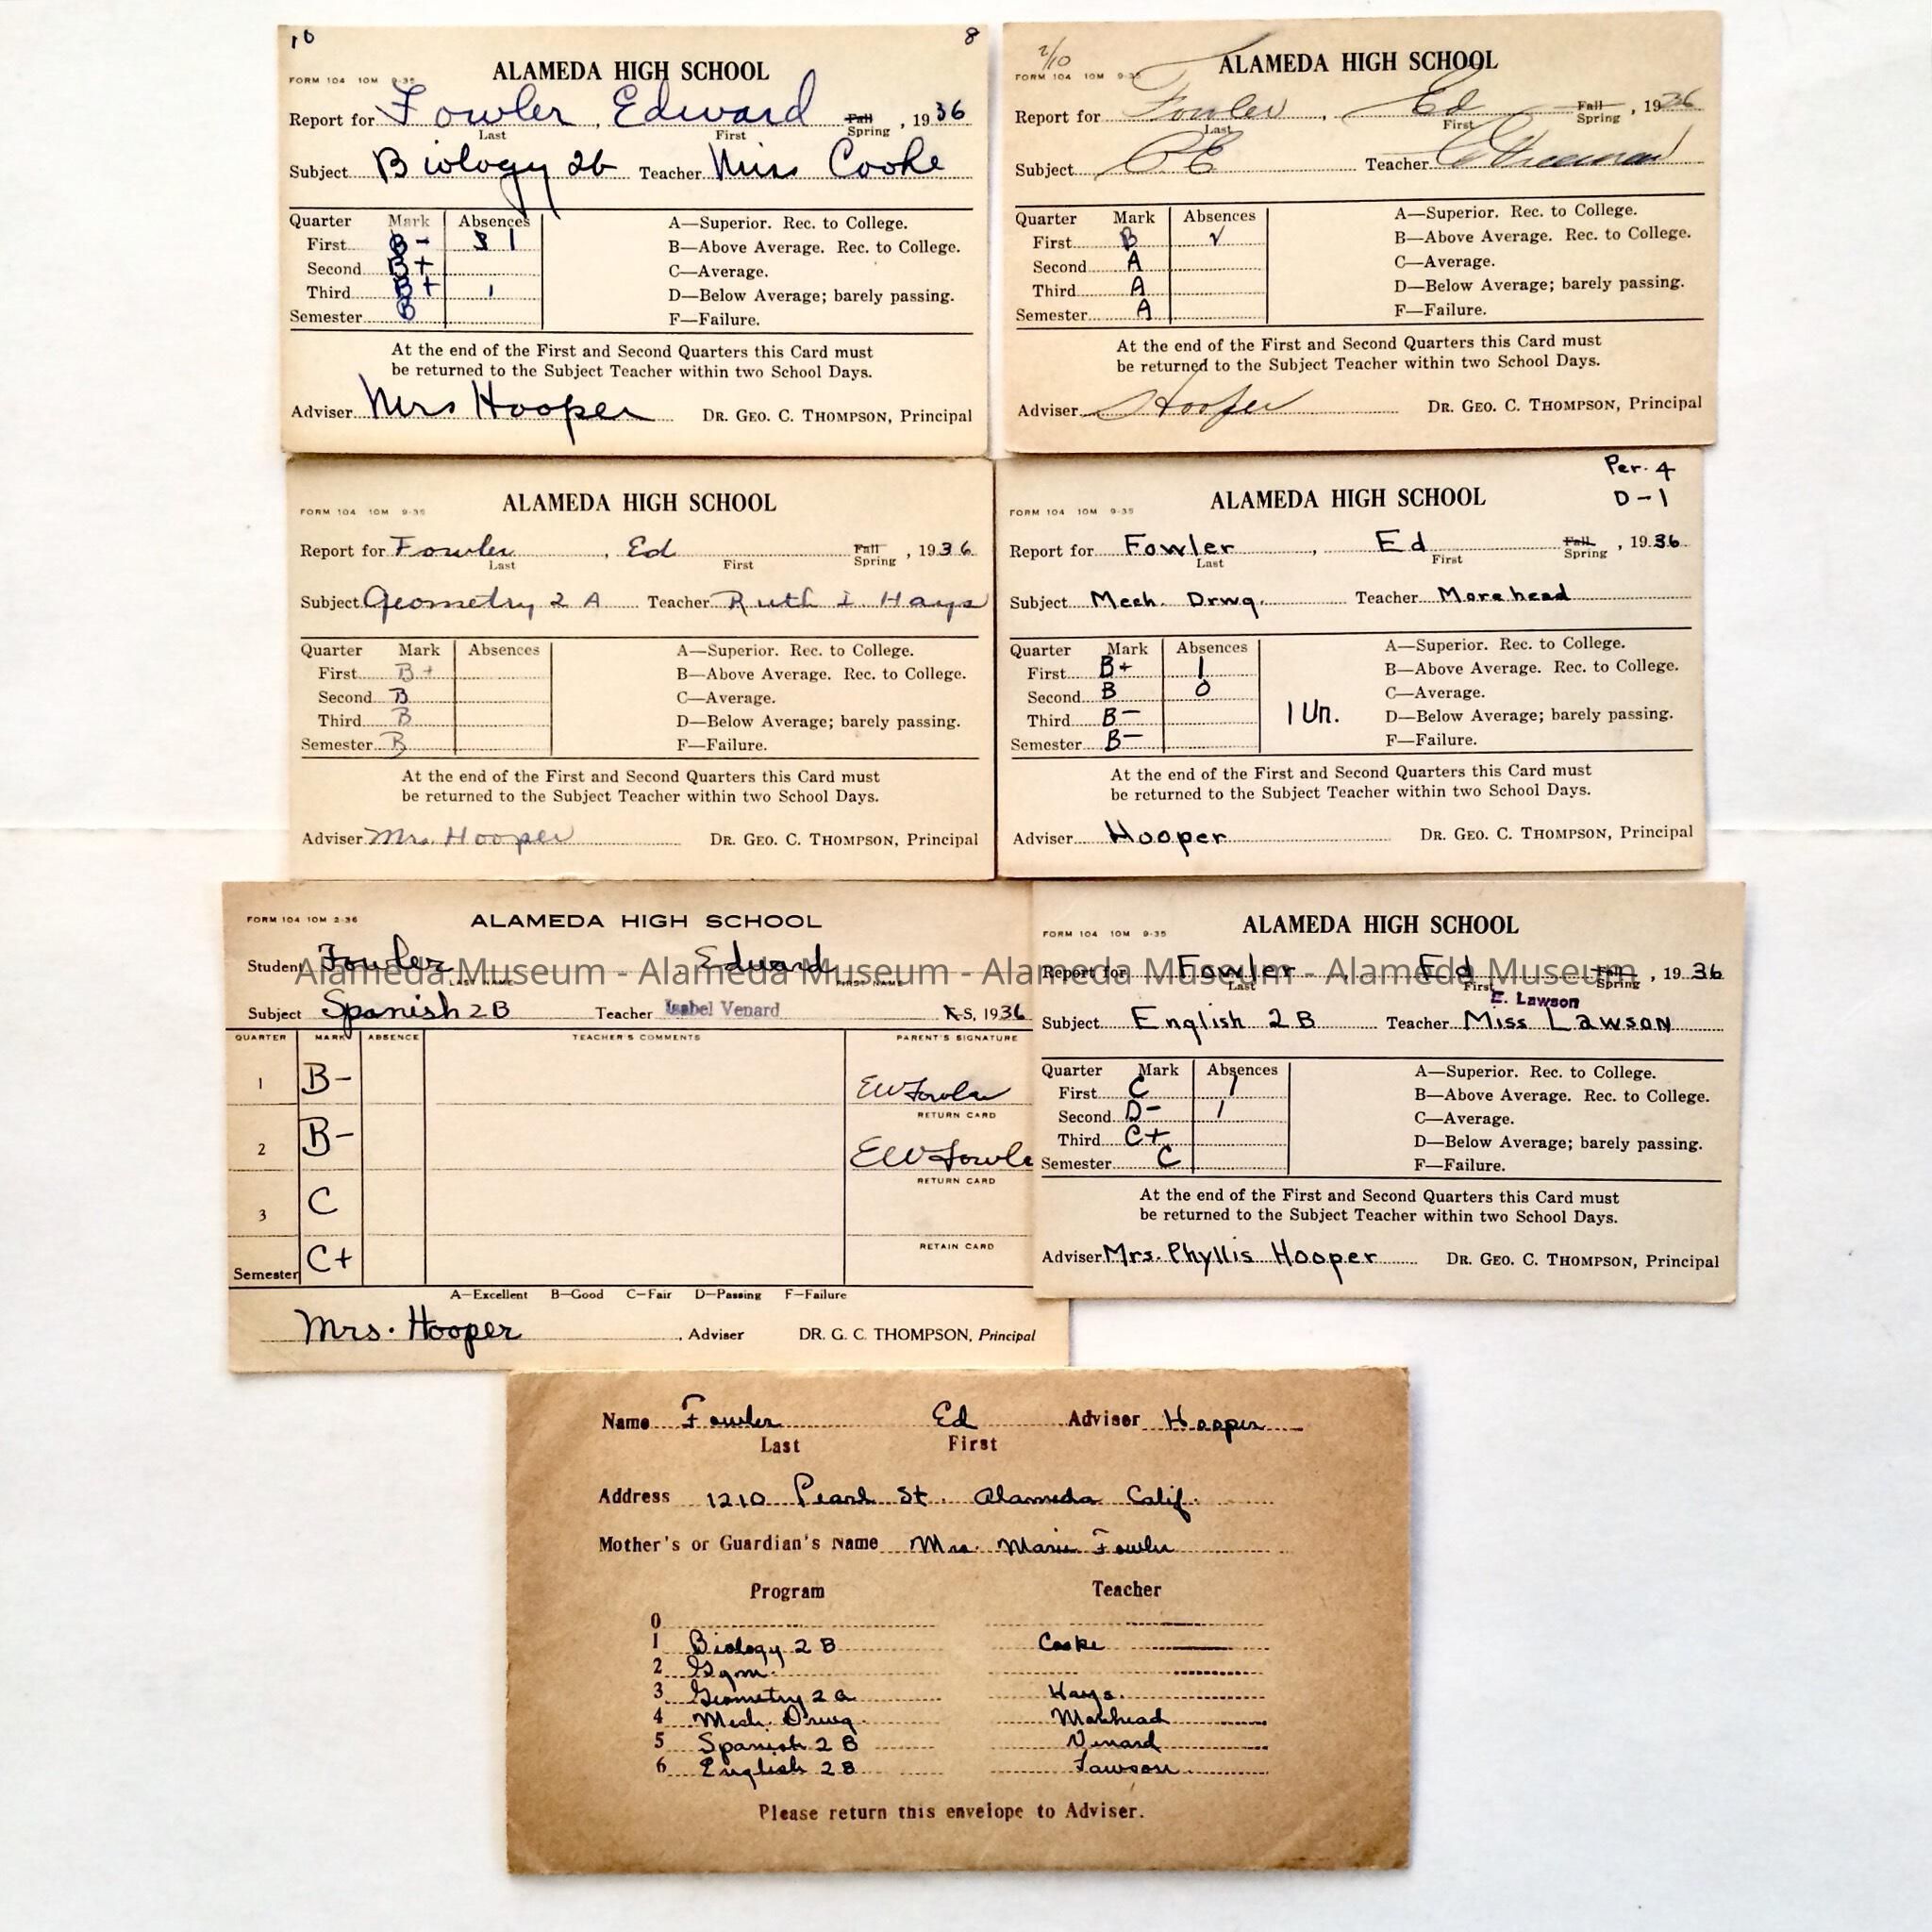 10 8
FORM 104 10M 9-35 ALAMEDA HIGH SCHOOL
Report for Fowler, Edward Fall Spring, 1936
Last First
Subject Biology 2b Teacher Miss Cooke
Quarter Mark Absences
First B- 1
Second B+
Third B+ 1
Semester B
A—Superior. Rec. to College.
B—Above Average. Rec. to College.
C—Average.
D—Below Average; barely passing.
F—Failure.
At the end of the First and Second Quarters this Card must
be returned to the Subject Teacher within two School Days.
Adviser Mrs Hooper DR. GEO. C. THOMPSON, Principal
2/10
FORM 104 10M 9-35 ALAMEDA HIGH SCHOOL
Report for Fowler, Ed Fall Spring, 1936
Last First
Subject PE Teacher
Quarter Mark Absences
First B
Second A
Third A
Semester A
A—Superior. Rec. to College.
B—Above Average. Rec. to College.
C—Average.
D—Below Average; barely passing.
F—Failure.
At the end of the First and Second Quarters this Card must
be returned to the Subject Teacher within two School Days.
Adviser Hooper DR. GEO. C. THOMPSON, Principal
FORM 104 10M 9-35 ALAMEDA HIGH SCHOOL
Report for Fowler, Ed Fall Spring, 1936
Last First
Subject Geometry 2 A Teacher Ruth I. Hays
Quarter Mark Absences
First B+
Second B
Third B
Semester B
A—Superior. Rec. to College.
B—Above Average. Rec. to College.
C—Average.
D—Below Average; barely passing.
F—Failure.
At the end of the First and Second Quarters this Card must
be returned to the Subject Teacher within two School Days.
Adviser Mrs. Hooper DR. GEO. C. THOMPSON, Principal
Per. 4
D-1
FORM 104 10M 9-35 ALAMEDA HIGH SCHOOL
Report for Fowler, Ed Fall Spring, 1936
Last First
Subject Mech. Drwg. Teacher Morehead
Quarter Mark Absences
First B+ 1
Second B 0
Third B-
Semester B-
1 Un.
A—Superior. Rec. to College.
B—Above Average. Rec. to College.
C—Average.
D—Below Average; barely passing.
F—Failure.
At the end of the First and Second Quarters this Card must
be returned to the Subject Teacher within two School Days.
Adviser Hooper DR. GEO. C. THOMPSON, Principal
FORM 104 10M 2-36 ALAMEDA HIGH SCHOOL
Student Fowler Edward
LAST NAME FIRST NAME
Subject Spanish 2B Teacher Isabel Venard F-S, 1936
QUARTER MARK ABSENCE TEACHER'S COMMENTS PARENT'S SIGNATURE
1 B- EW Fowler
RETURN CARD
2 B- EW Fowle
RETURN CARD
3 C
RETAIN CARD
Semester C+
A—Excellent B—Good C—Fair D—Passing F—Failure
Mrs. Hooper, Adviser DR. G. C. THOMPSON, Principal
FORM 104 10M 9-35 ALAMEDA HIGH SCHOOL
Report for Fowler, Ed Fall Spring, 1936
Last First
E. Lawson
Subject English 2B Teacher Miss Lawson
Quarter Mark Absences
First C 1
Second D- 1
Third C+
Semester C
A—Superior. Rec. to College.
B—Above Average. Rec. to College.
C—Average.
D—Below Average; barely passing.
F—Failure.
At the end of the First and Second Quarters this Card must
be returned to the Subject Teacher within two School Days.
Adviser Mrs. Phyllis Hooper DR. GEO. C. THOMPSON, Principal
Alameda Museum - Alameda Museum - Alameda Museum - Alameda Museum
Name Fowler Ed Adviser Hooper
Last First
Address 1210 Pearl St. Alameda Calif.
Mother's or Guardian's Name Mrs. Marie Fowler
Program Teacher
0
1 Biology 2 B Cooke
2 Gym.
3 Geometry 2a Hays.
4 Mech. Drwg. Morehead
5 Spanish 2 B Venard
6 English 2B Lawson
Please return this envelope to Adviser.